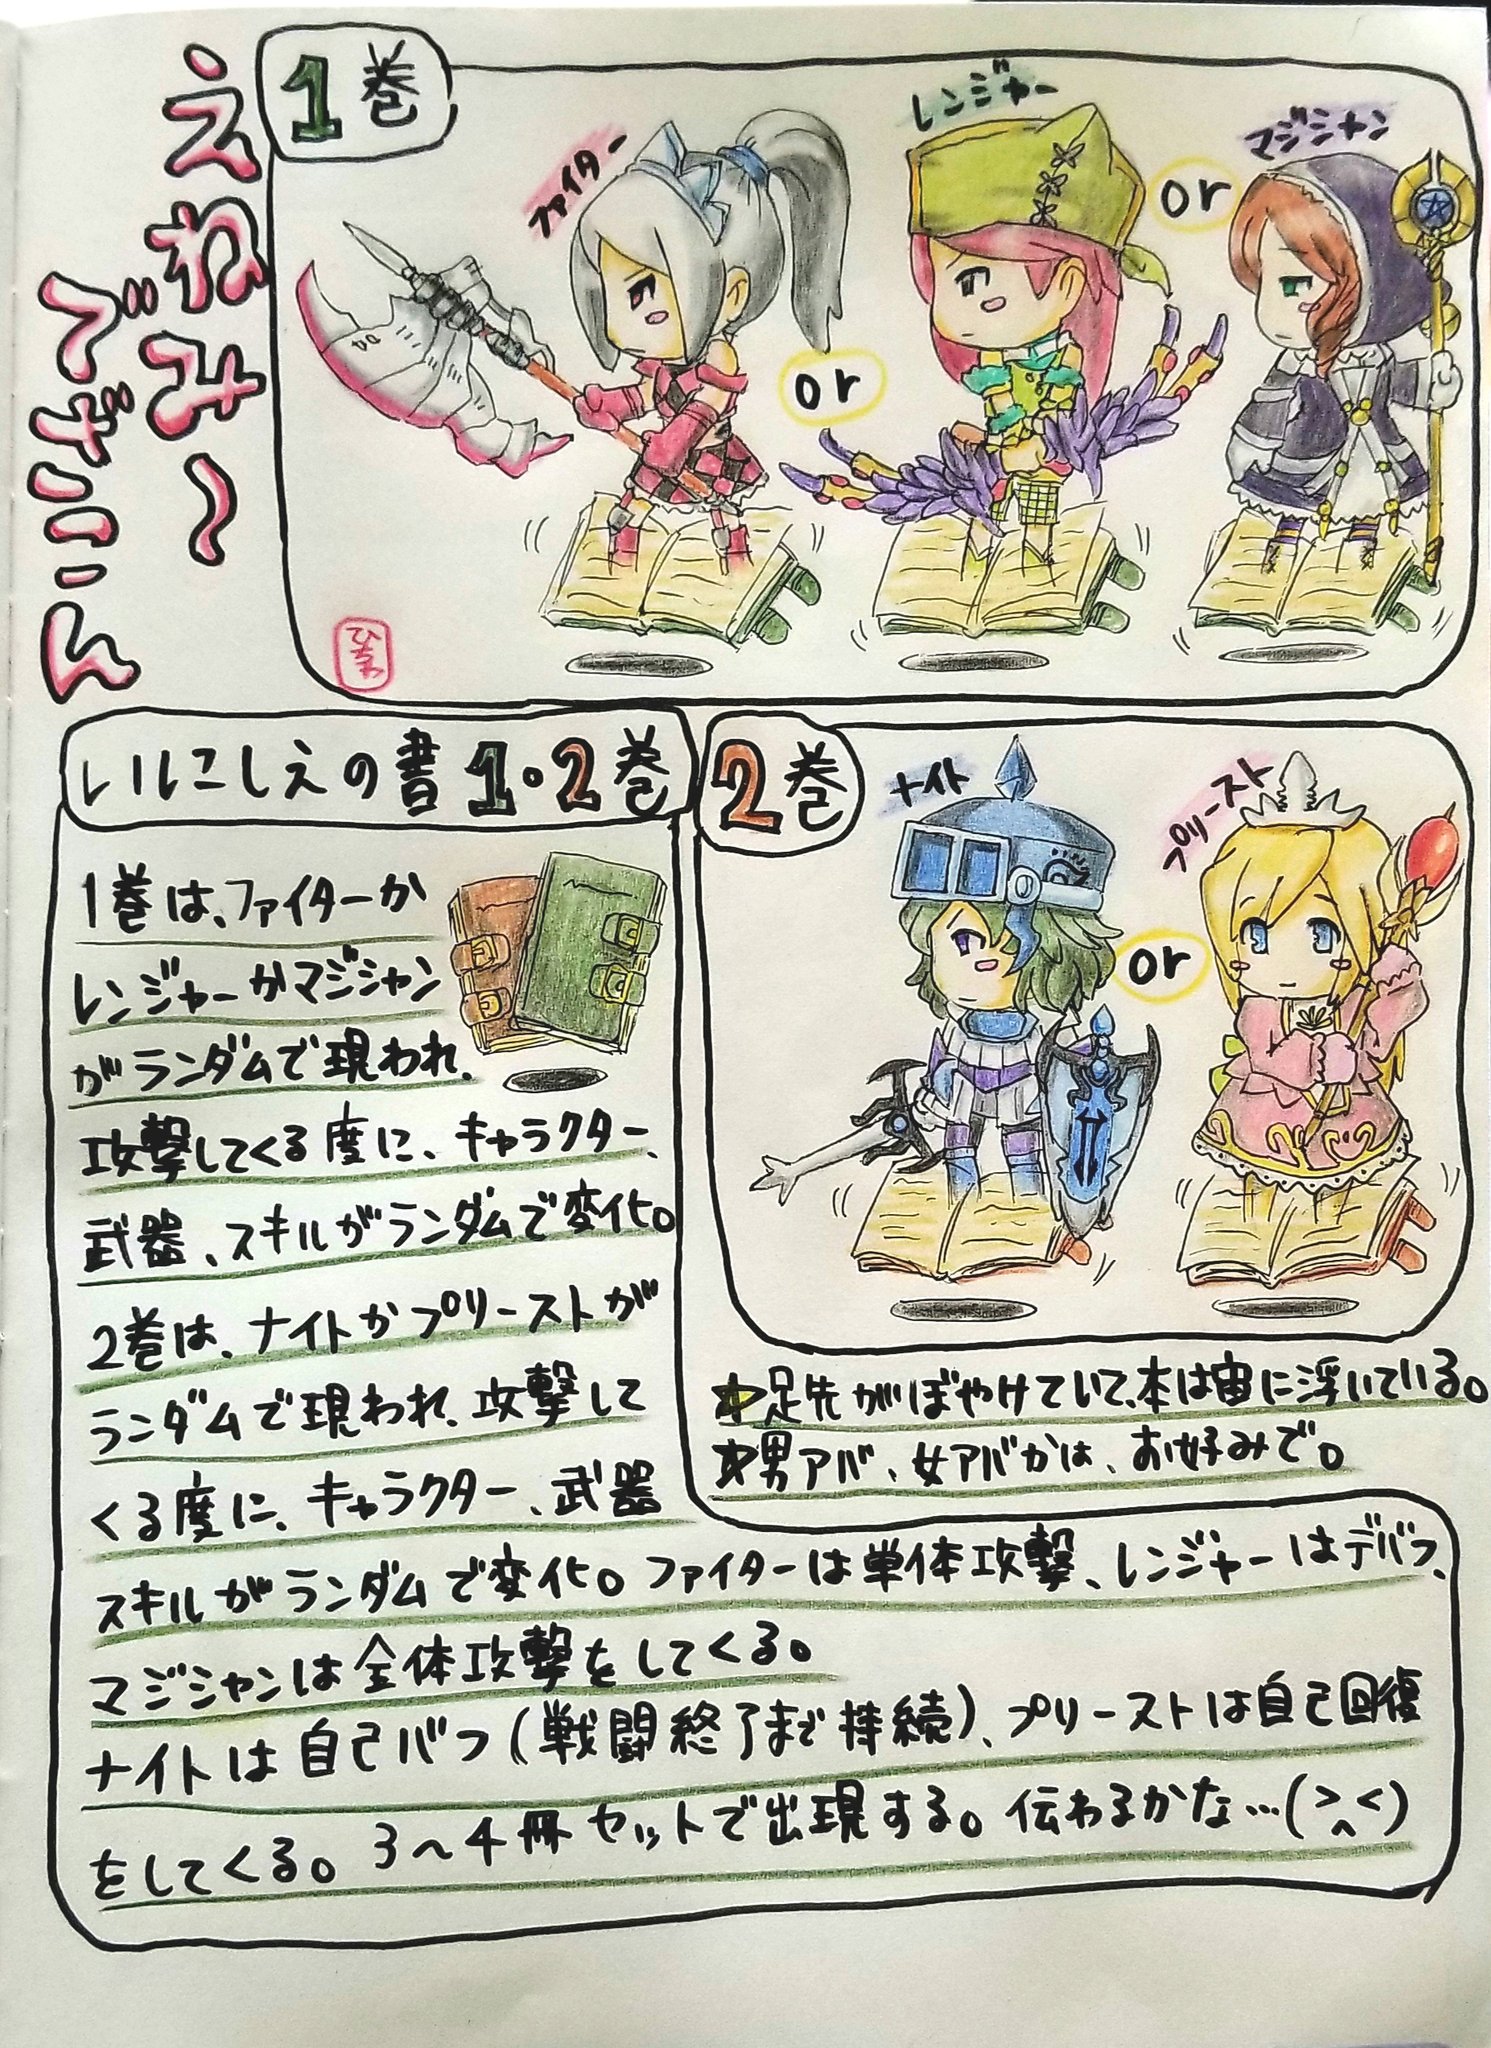 えねみ〜
でざこん
1巻
ファイター
or
レンジャー
or
マジシャン
ひちわ
いにしえの書 1・2巻
1巻は、ファイターか
レンジャーかマジシャン
がランダムで現われ、
攻撃してくる度に、キャラクター、
武器、スキルがランダムで変化。
2巻は、ナイトかプリーストが
ランダムで現われ、攻撃して
くる度に、キャラクター、武器
スキルがランダムで変化。ファイターは単体攻撃、レンジャーはデバフ、
マジシャンは全体攻撃をしてくる。
ナイトは自己バフ(戦闘終了まで持続)、プリーストは自己回復
をしてくる。3〜4冊セットで出現する。伝わるかな…(>^<)
2巻
ナイト
or
プリースト
☆足先がぼやけていて、本は宙に浮いている。
☆男アバ、女アバかは、お好みで。